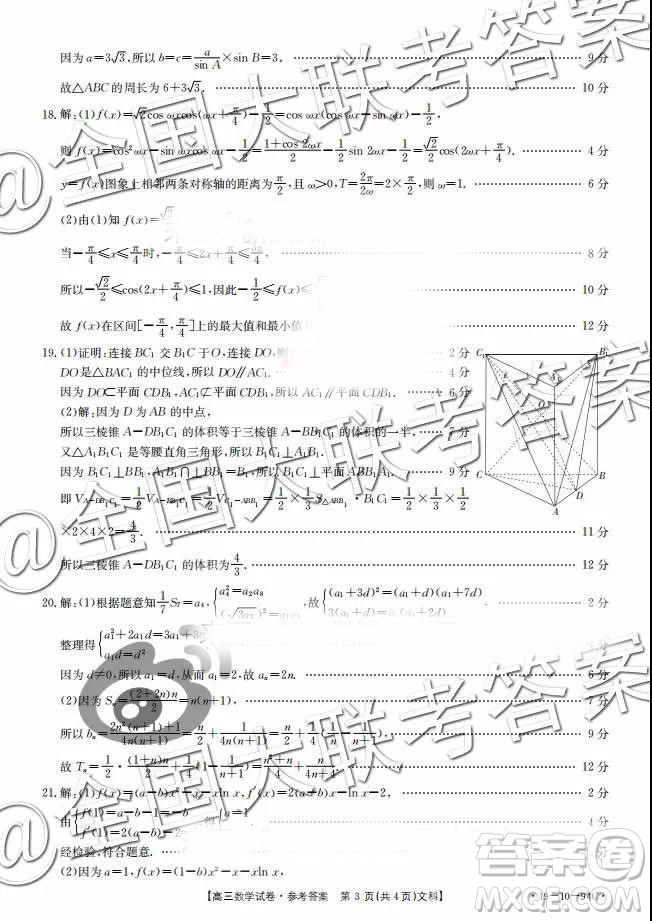 因为 a=3√3,所以 b=c=a/sin A×sin B=3. 9 分
故△ABC 的周长为 6+3√3. 10 分
18.解:(1)f(x)=√2cos ωxcos(ωx+π/4)-1/2=cos ωx(cos ωx-sin ωx)-1/2,
则 f(x)=cos²ωx-sin ωxcos ωx-1/2=(1+cos 2ωx)/2-1/2sin 2ωx-1/2=√2/2cos(2ωx+π/4). 4 分
y=f(x)图象上相邻两条对称轴的距离为π/2,且 ω>0,T=2π/2ω=2×π/2,则 ω=1. 6 分
(2)由(1)知 f(x)=√2
当-π/4≤x≤π/4时,-π/4≤2x+π/4≤3π/4, 8 分
所以-√2/2≤cos(2x+π/4)≤1,因此-1/2≤f(x)≤ 10 分
故 f(x)在区间[-π/4,π/4]上的最大值和最小值分 12 分
19.(1)证明:连接 BC₁ 交 B₁C 于 O,连接 DO,则 2 分
DO 是△BAC₁ 的中位线,所以 DO∥AC₁. 4 分
因为 DO⊂平面 CDB₁,AC₁⊄平面 CDB₁,所以 AC₁∥平面 CDB₁. 6 分
(2)解:因为 D 为 AB 的中点,
所以三棱锥 A-DB₁C₁ 的体积等于三棱锥 A-BB₁C₁ 的体积的一半, 7 分
又△A₁B₁C₁ 是等腰直角三角形,所以 B₁C₁⊥A₁B₁.
因为 B₁C₁⊥BB₁,A₁B₁∩BB₁=B₁,所以 B₁C₁⊥平面 ABB₁A₁. 9 分
即 V_{A-DB₁C₁}=1/2V_{A-BB₁C₁}=1/2V_{C₁-ABB₁}=1/2×1/3S_{△ABB₁}·B₁C₁=1/2×1/3×1/2
×2×4×2=4/3. 11 分
所以三棱锥 A-DB₁C₁ 的体积为4/3. 12 分
C₁ B₁ A₁ O C B D A
20.解:(1)根据题意知1/7S₇=a₄,{a₄²=a₂a₈ (√3a₄)²=a₁a,故{(a₁+3d)²=(a₁+d)(a₁+7d) 3(a₁+d)=a₁(a₁+2d). 2 分
整理得{a₁²+2a₁d=3a₁+3 a₁d=d²
因为 d≠0,所以 a₁=d,从而 a₁=2,故 aₙ=2n. 6 分
(2)因为 Sₙ=(2+2n)n/2=n(n+1), 7 分
所以 bₙ=(2n²(n+1)+1)/4n(n+1)=n/2+1/4n(n+1)=n/2+1/4(1/n-1/(n+1)), 9 分
故 Tₙ=1/2·(1+n)n/2+1/4(1-1/(n+1))=(n²+n)/4+n/(4n+4). 12 分
21.解:(1)f(x)=(a-b)x²-x-xln x,f′(x)=2(a-b)x-ln x-2, 2 分
由{f(1)=a-b-1=-b f′(1)=2(a-b)-2 得{a=1 4 分
经检验,符合题意.
(2)因为 a=1,f(x)=(1-b)x²-x-xln x,
【高三数学试卷·参考答案 第 3 页(共 4 页)文科】
·19-10-94C·
@全国大联考答案
@全国大联考答案
@全国大联考答案
答案圈
MXQE.COM